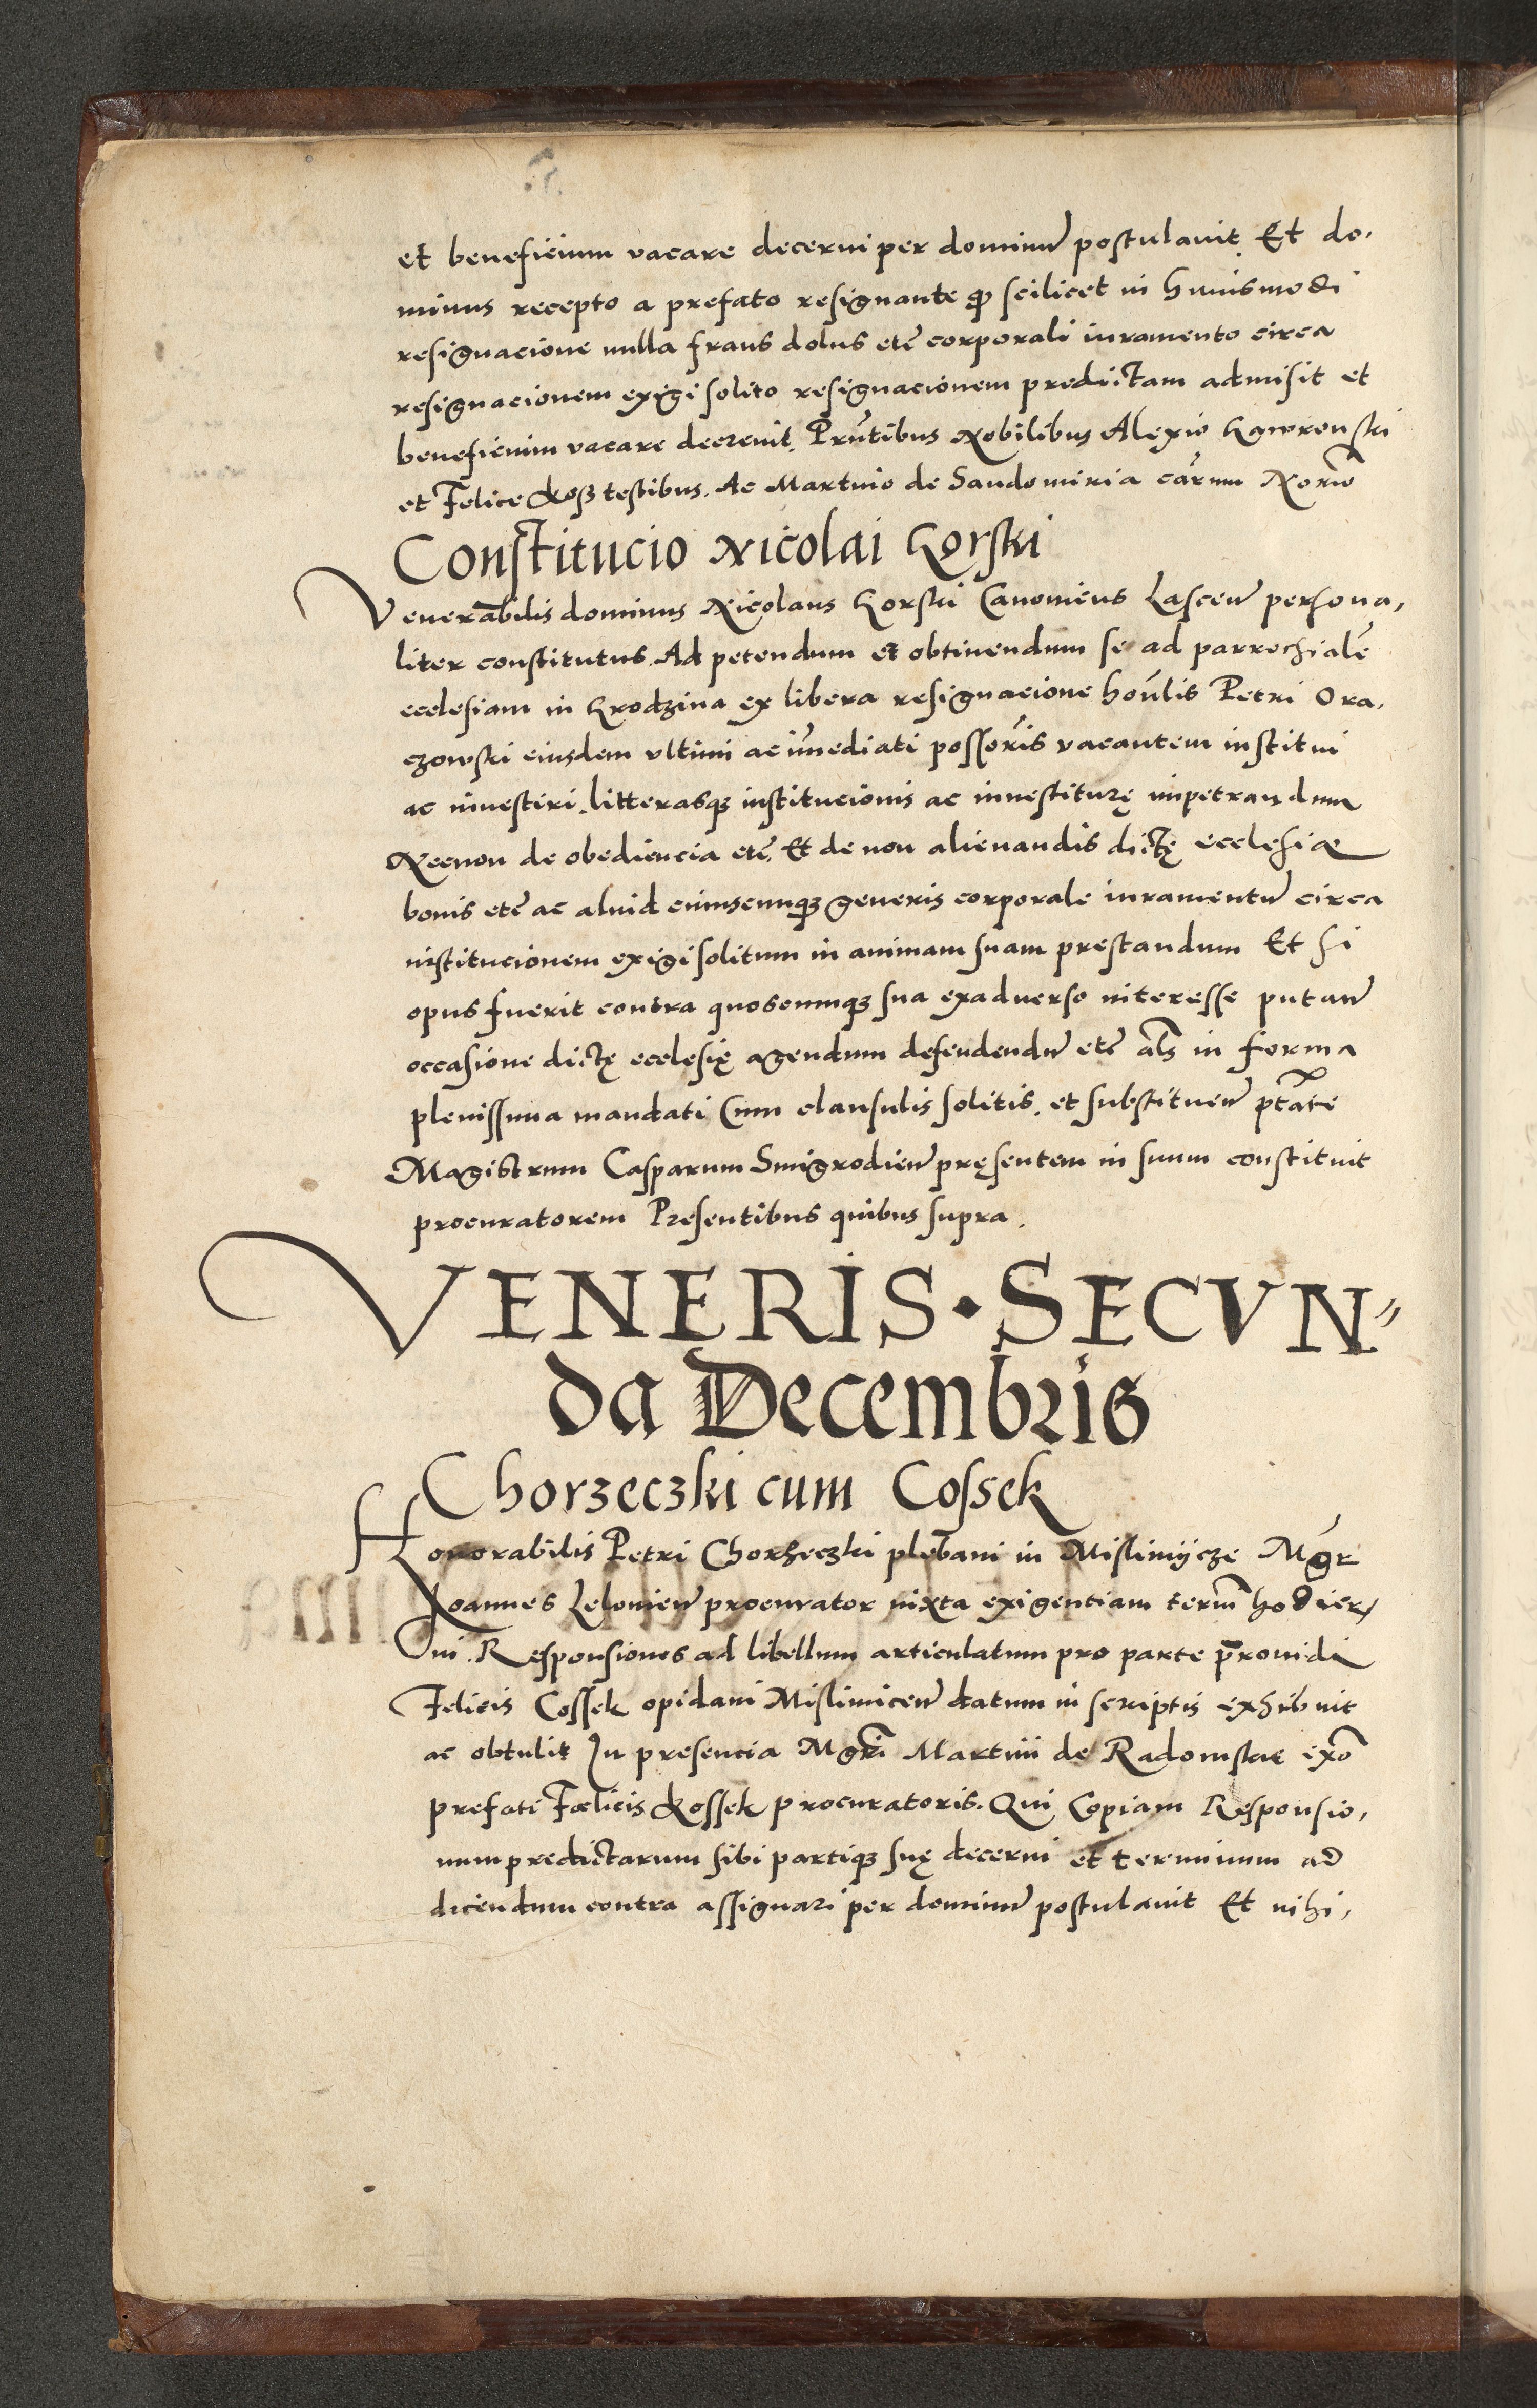 et beneficium vacare decerni per dominū postulavit. Et do,
minus recepto a prefato resignante ꝙ scilicet in huiusmodi
resignacione nulla fraus dolus etc̄ corporali iuramento circa
resignacionem exigi solito resignacionem predictam admisit et
beneficium vacare decrevit. Prn̄tibus Nobilibus Alexio Gawronski
et Felice Kosz testibus. Ac Martino de Sandomiria Notrio
Constitucio Nicolai Gorski
Venerabilis dominus Nicolaus Gorski Canonicus Lascen̄ persona,
liter constitutus. Ad petendum et obtinendum se ad parrochialē
ecclesiam in Grodzina ex libera resignacione hon̄lis Petri Ora,
czowski eiusdem ultimi ac im̄ediati possor̄is vacantem institui
ac investiri. litterasqꝫ institucionis ac investiturę impetrandum
Necnon de obediencia etc̄. Et de non alienandis dictę ecclesiæ
bonis etc̄ ac aliud cuiuscunqꝫ generis corporale iuramentū circa
institucionem exigi solitum in animam suam prestandum Et si
opus fuerit contra quoscunqꝫ sua exadverso interesse putan̄
occasione dictę ecclesię agendum defendendū etc̄ al̄s in forma
plenissima mandati Cum clausulis solitis. et substituen̄ ptāte
Magistrum Casparum Smigrodien̄ pręsentem in suum constituit
procuratorem Presentibus quibus supra.
VENERIS · SECVN"
da Decembris
Chorzeczki cum Cossek
Honorabilis Petri Chorzeczki pleb̄ani in Mislimijcze Mḡr
Joannes Lelovien̄ procurator iuxta exigentiam term̄ hodier,
ni. Responsiones ad libellum articulatum pro parte p̄rovidi
Felicis Cossek opidani Mislimicen̄ datum in scriptis exhibuit
ac obtulit In presencia Mgr̄i Martini de Radomskae exō
prefati Fœlicis Kossek procuratoris. Qui Copiam Responsio,
num predictarum sibi partiqꝫ suę decerni et terminum ad
dicendum contra assignari per dominū postulavit Et nihi,